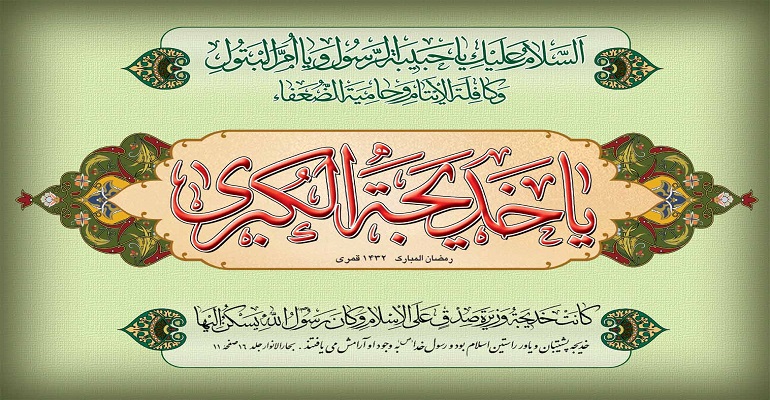 اَلسَّلامُ عَلَيْكِ يا حَبيبَةَ الرَّسُولِ وَ يا اُمَّ الْبَتُولِ
وَ كافِلَةَ الْاَيْتامِ وَ حامِيَةَ الضُّعَفاء
يا خَديجَةُ الْكُبْرى
رمضان المبارک ۱۴۳۲ قمری
كانَتْ خَديجَةُ وَزيرَةَ صِدْقٍ عَلَى الْاِسْلامِ وَ كانَ رَسُولُ اللهِ يَسْكُنُ اِلَيْها
خدیجه پشتیبان و یاور راستین اسلام بود و رسول خدا ص به وجود او آرامش می یافتند. بحارالانوار جلد ۱۶ صفحه ۱۱